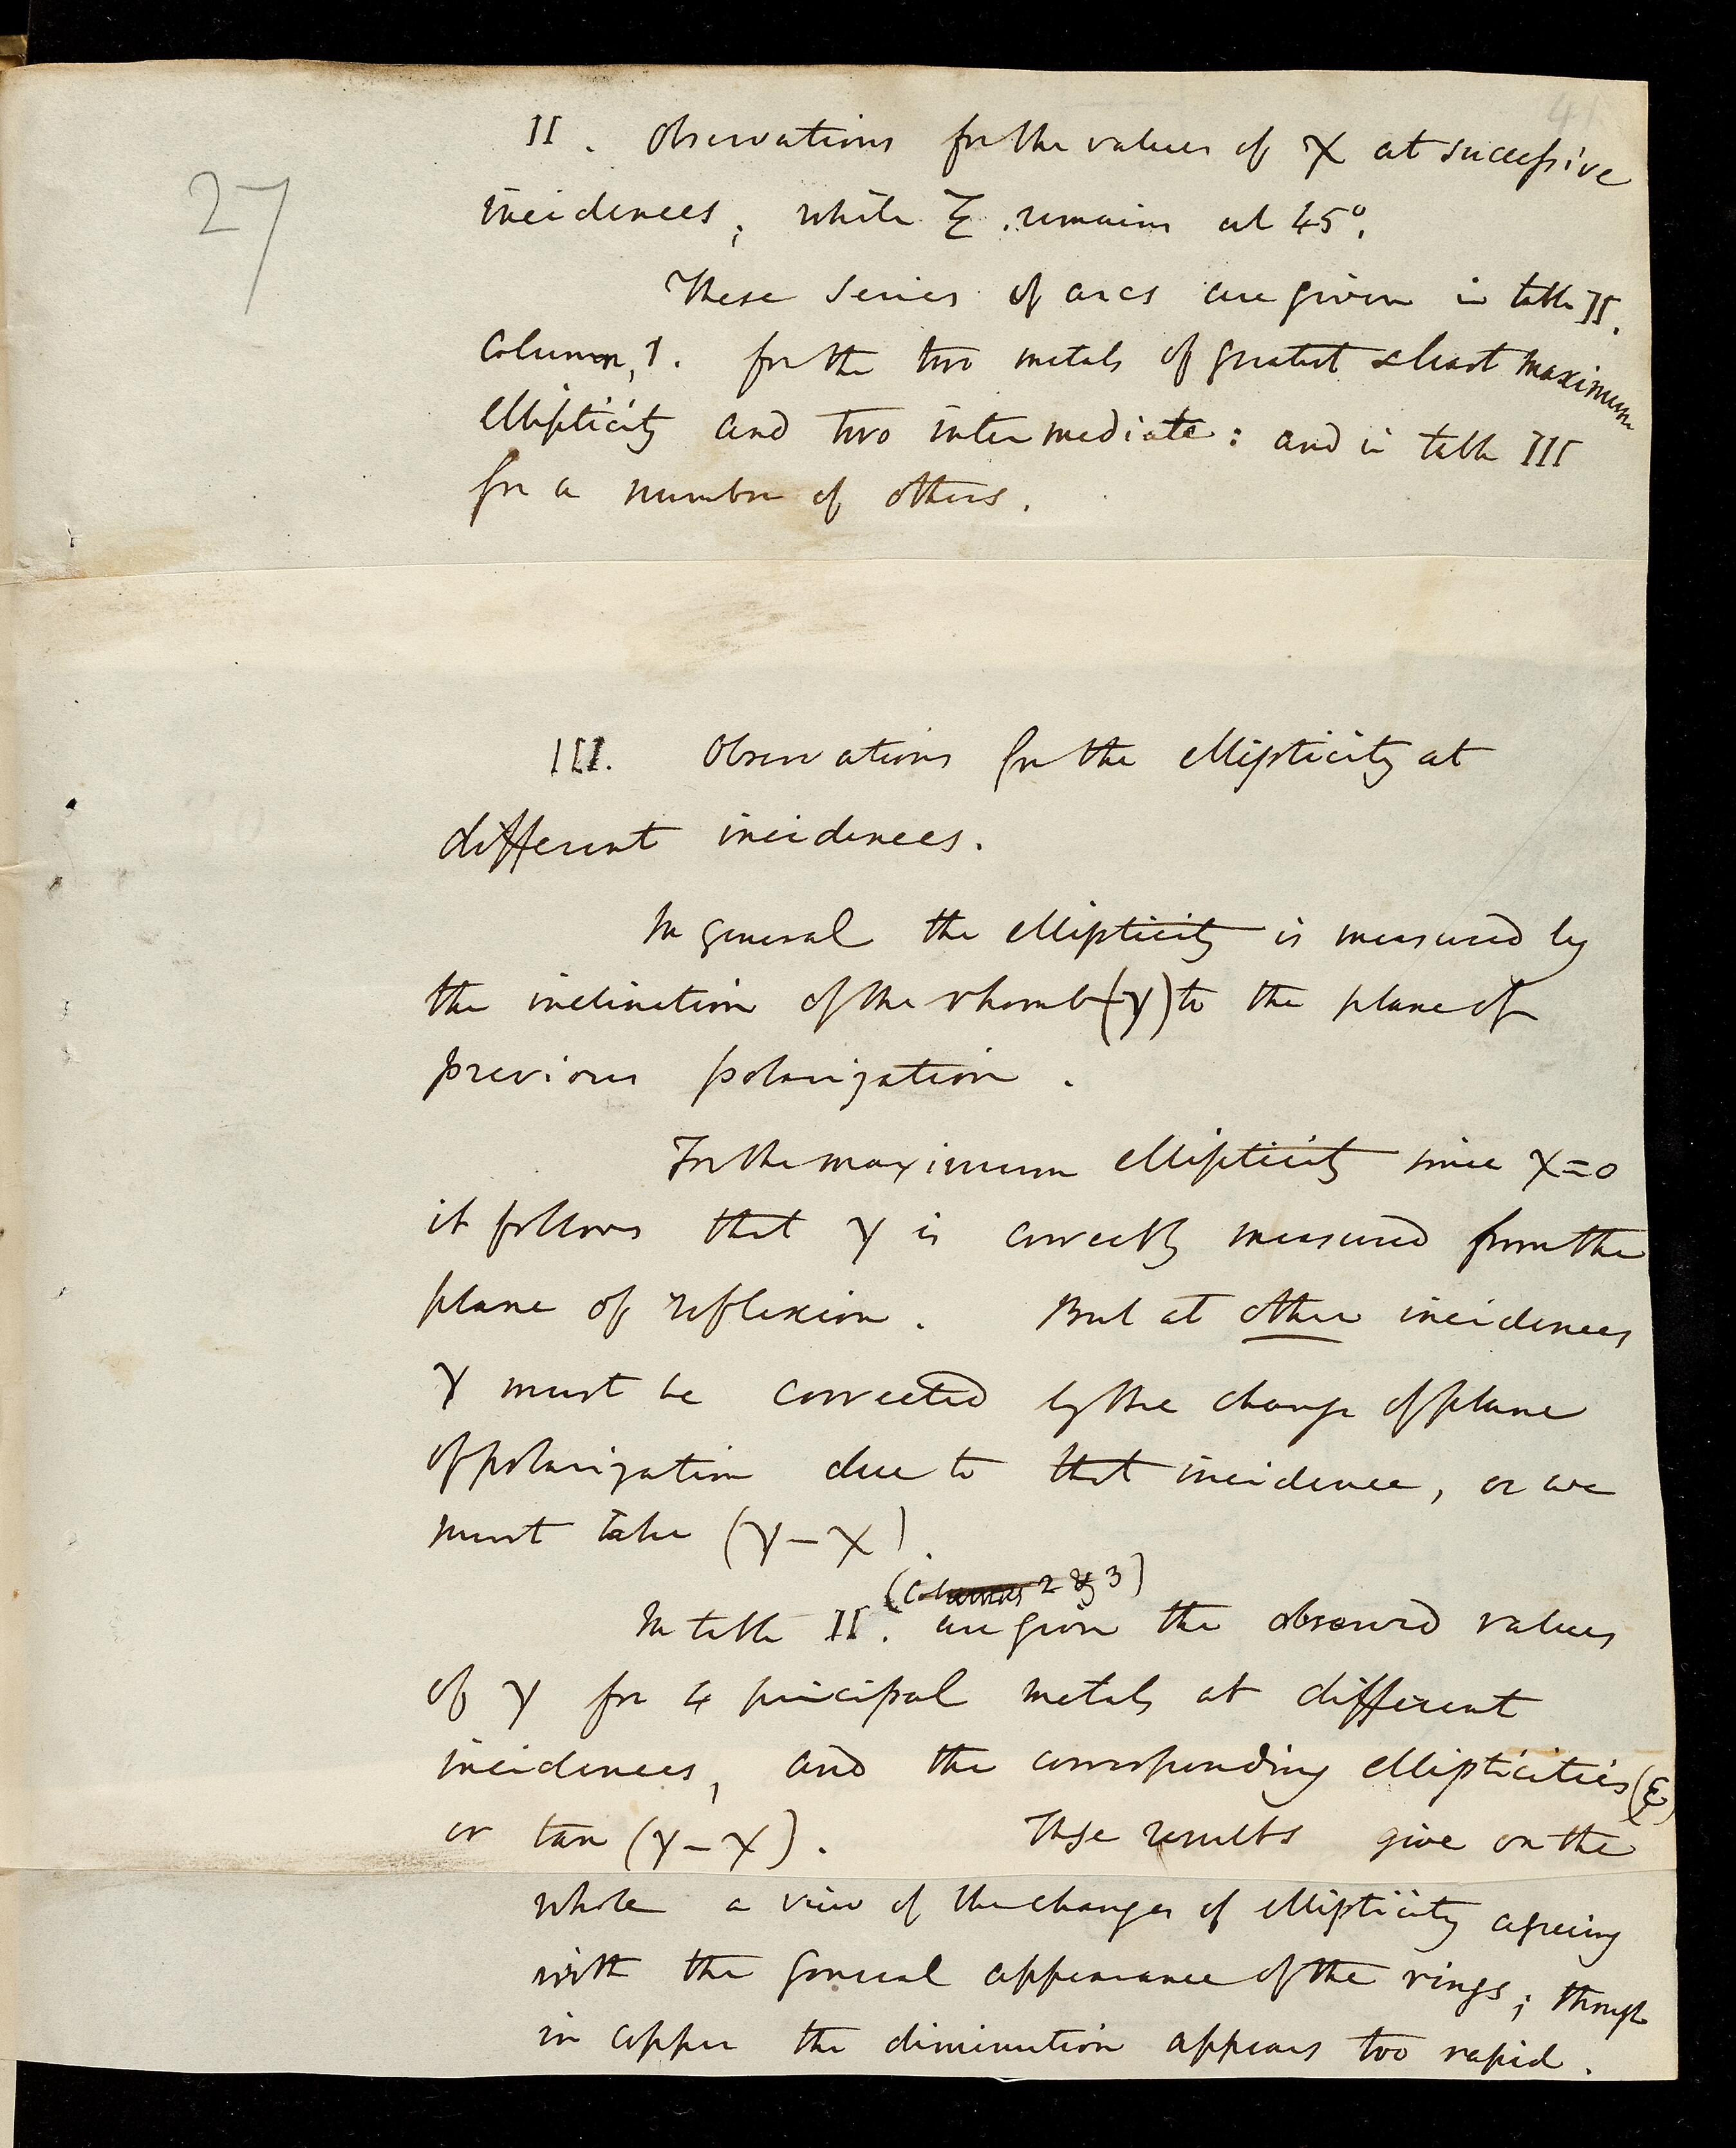 41
27
II. Observations for the values of χ at successive
incidences, while ξ remains at 45°.
These series of arcs are given in table II.
Column, 1. for the two metals of greatest & least maximum
ellipticity and two intermediate: and in table III
for a number of others.
III. Observations for the ellipticity at
different incidences.
In general the ellipticity is measured by
the inclination of the rhomb (γ) to the plane of
previous polarization.
For the maximum ellipticity since χ=0
it follows that γ is correctly measured from the
plane of reflexion. But at other incidences
γ must be corrected by the change of plane
of polarization due to that incidence, or we
must take (γ–χ).
(Columns 2 & 3)
In table II. are given the observed values
of γ for 4 principal metals at different
incidences, and the corresponding ellipticities (ε)
or tan (γ–χ). These results give on the
whole a view of the changes of ellipticity agreeing
with the general appearance of the rings; though
in copper the diminution appears too rapid.